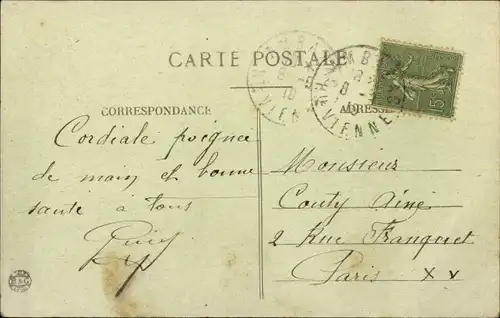 CARTE POSTALE
CORRESPONDANCE
ADRESSE
Cordiale poignée
de main et bonne
santé à tous
Monsieur
Couty Ainé
2 Rue Franquet
Paris XV
VIENNE
VIENNE
15